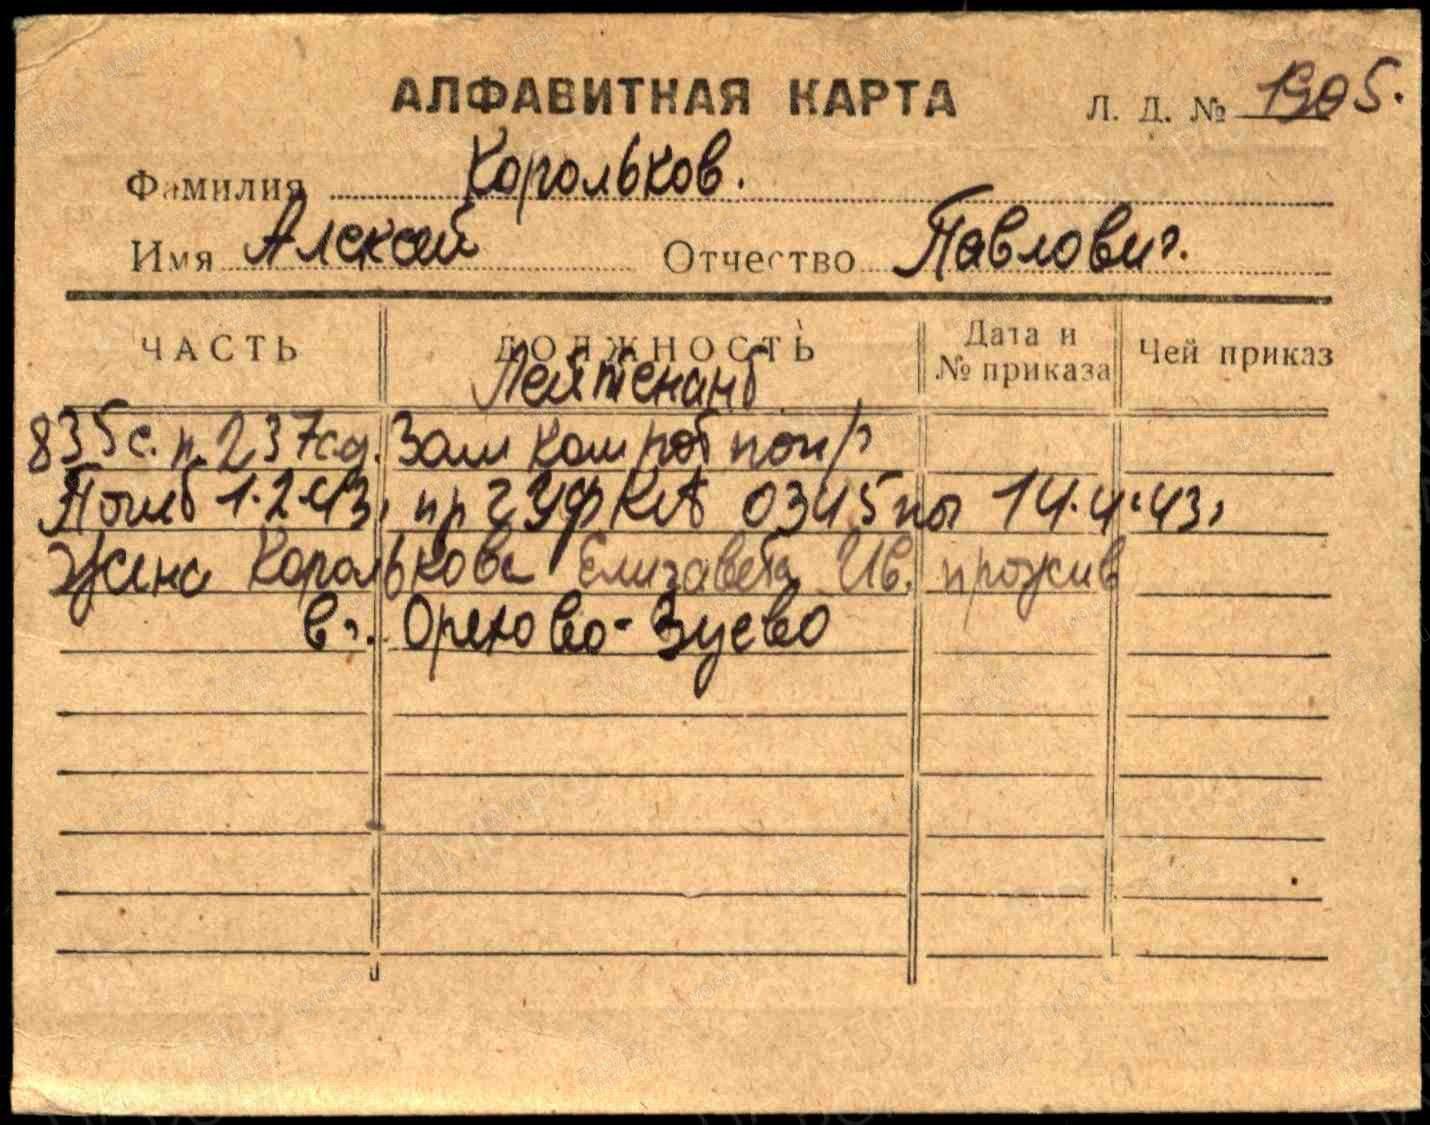 АЛФАВИТНАЯ КАРТА Л. Д. № 1905.
Фамилия Корольков.
Имя Алексей Отчество Павлович.
ЧАСТЬ ДОЛЖНОСТЬ Дата и № приказа Чей приказ
Лейтенант
835 с.п. 237 с.д. Зам ком рот по п/ч
Погиб 1.2.43. пр ГУФКА 0345 от 14.4.43.
Жена Королькова Елизавета Ив. прожив
в г. Орехово-Зуево